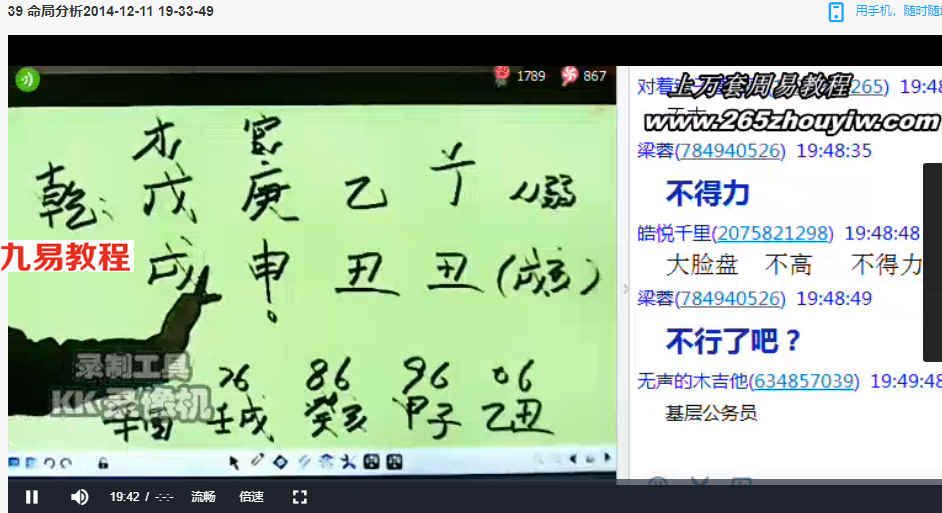 39 命局分析2014-12-11 19-33-49
用手机，随时随
1789 867
才 官
乾: 戊 庚 乙 丁 从弱
戌 申 丑 丑 (戌亥)
九易教程
录制工具
KK录像机
76 86 96 06
辛酉 壬戌 癸亥 甲子 乙丑
19:42 / -:-- 流畅 倍速
对着 265) 19:48
上万套周易教程
www.265zhouyiw.com
梁蓉(784940526) 19:48:35
不得力
皓悦千里(2075821298) 19:48:48
大脸盘 不高 不得力
梁蓉(784940526) 19:48:49
不行了吧？
无声的木吉他(634857039) 19:49:48
基层公务员